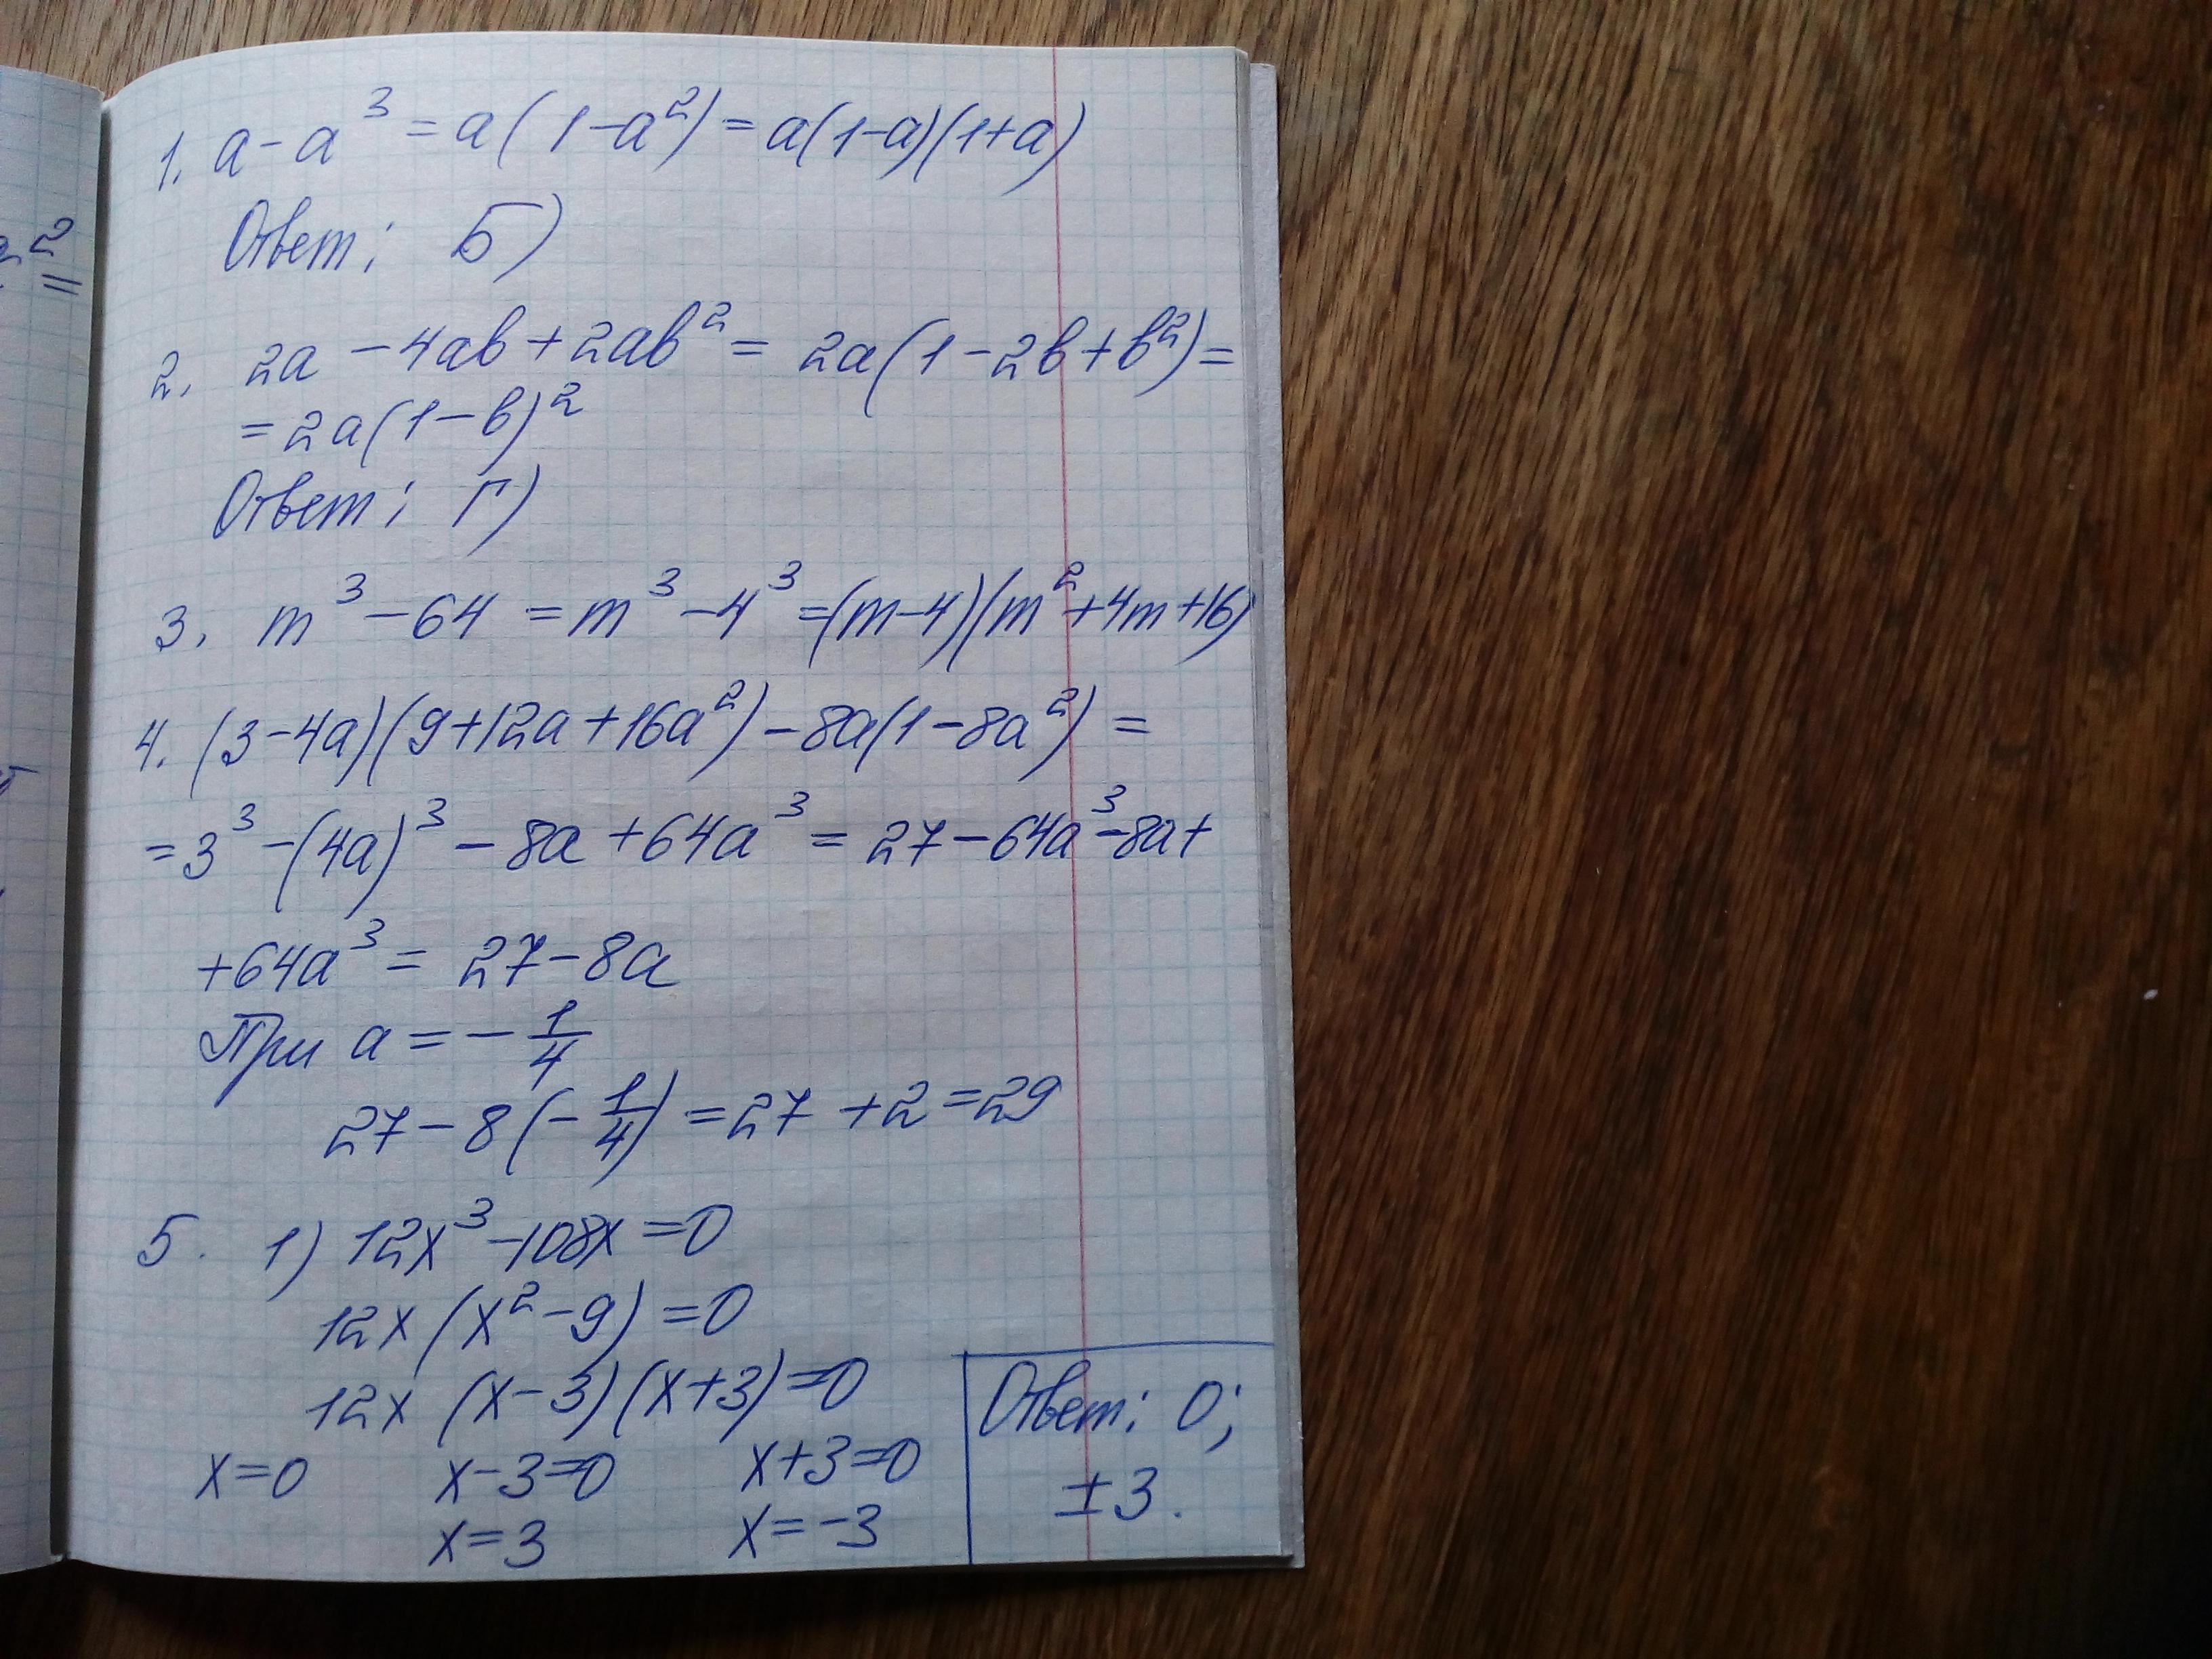 1. a - a³ = a(1-a²) = a(1-a)(1+a)
Ответ: Б)
2. 2a - 4ab + 2ab² = 2a(1 - 2b + b²) =
= 2a(1-b)²
Ответ: Г)
3. m³ - 64 = m³ - 4³ = (m-4)(m²+4m+16)
4. (3-4a)(9+12a+16a²) - 8a(1-8a²) =
= 3³ - (4a)³ - 8a + 64a³ = 27 - 64a³ - 8a +
+ 64a³ = 27 - 8a
При a = - 1/4
27 - 8(-1/4) = 27 + 2 = 29
5. 1) 12x³ - 108x = 0
12x(x² - 9) = 0
12x (x-3)(x+3) = 0
x=0 x-3=0 x+3=0
x=3 x=-3
Ответ: 0;
±3.